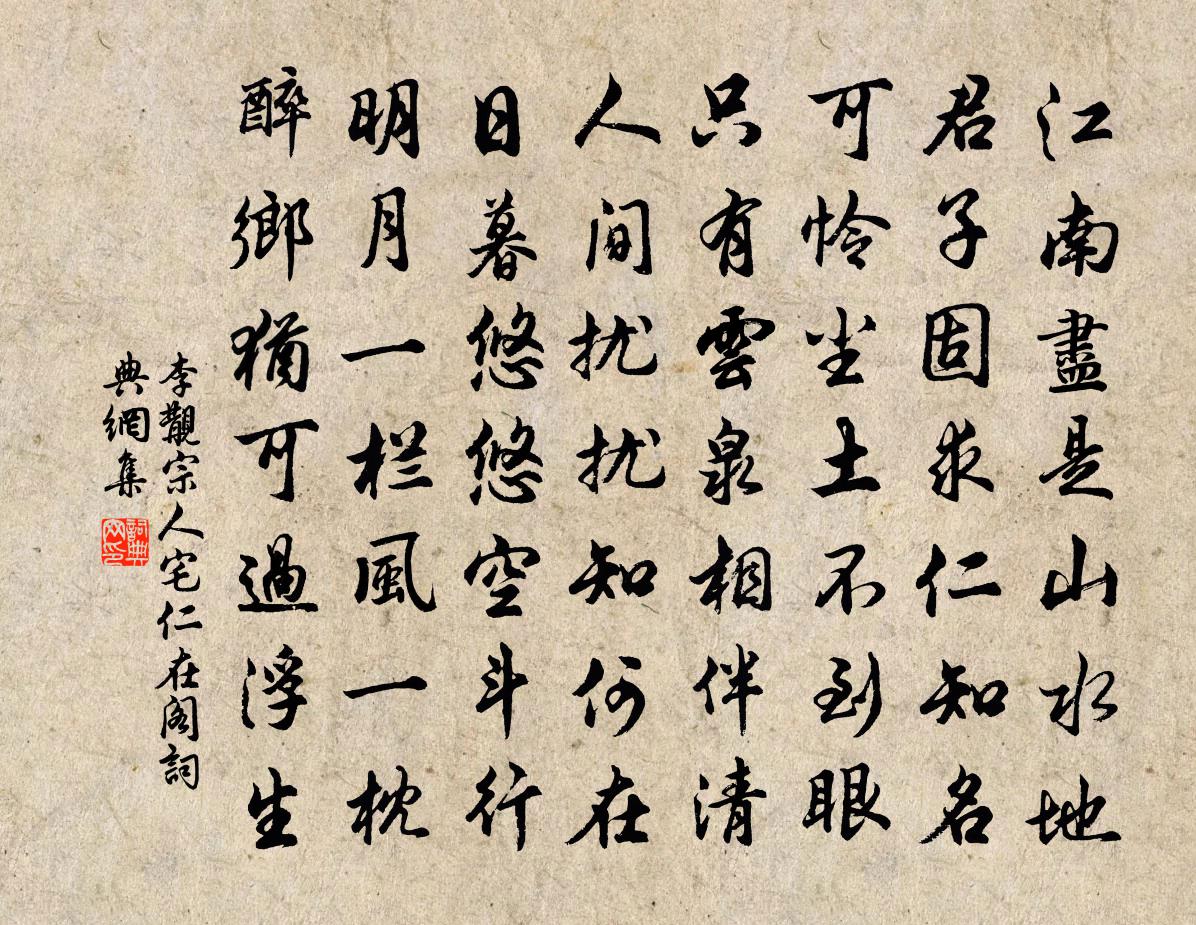 江南盡是山水地
君子固求仁知名
可怜尘土不到眼
只有雲泉相伴清
人间扰扰知何在
日暮悠悠空斗行
明月一栏風一枕
醉鄉猶可過浮生
李觀宗人宅仁在阁詞
典網集
詞典
网印